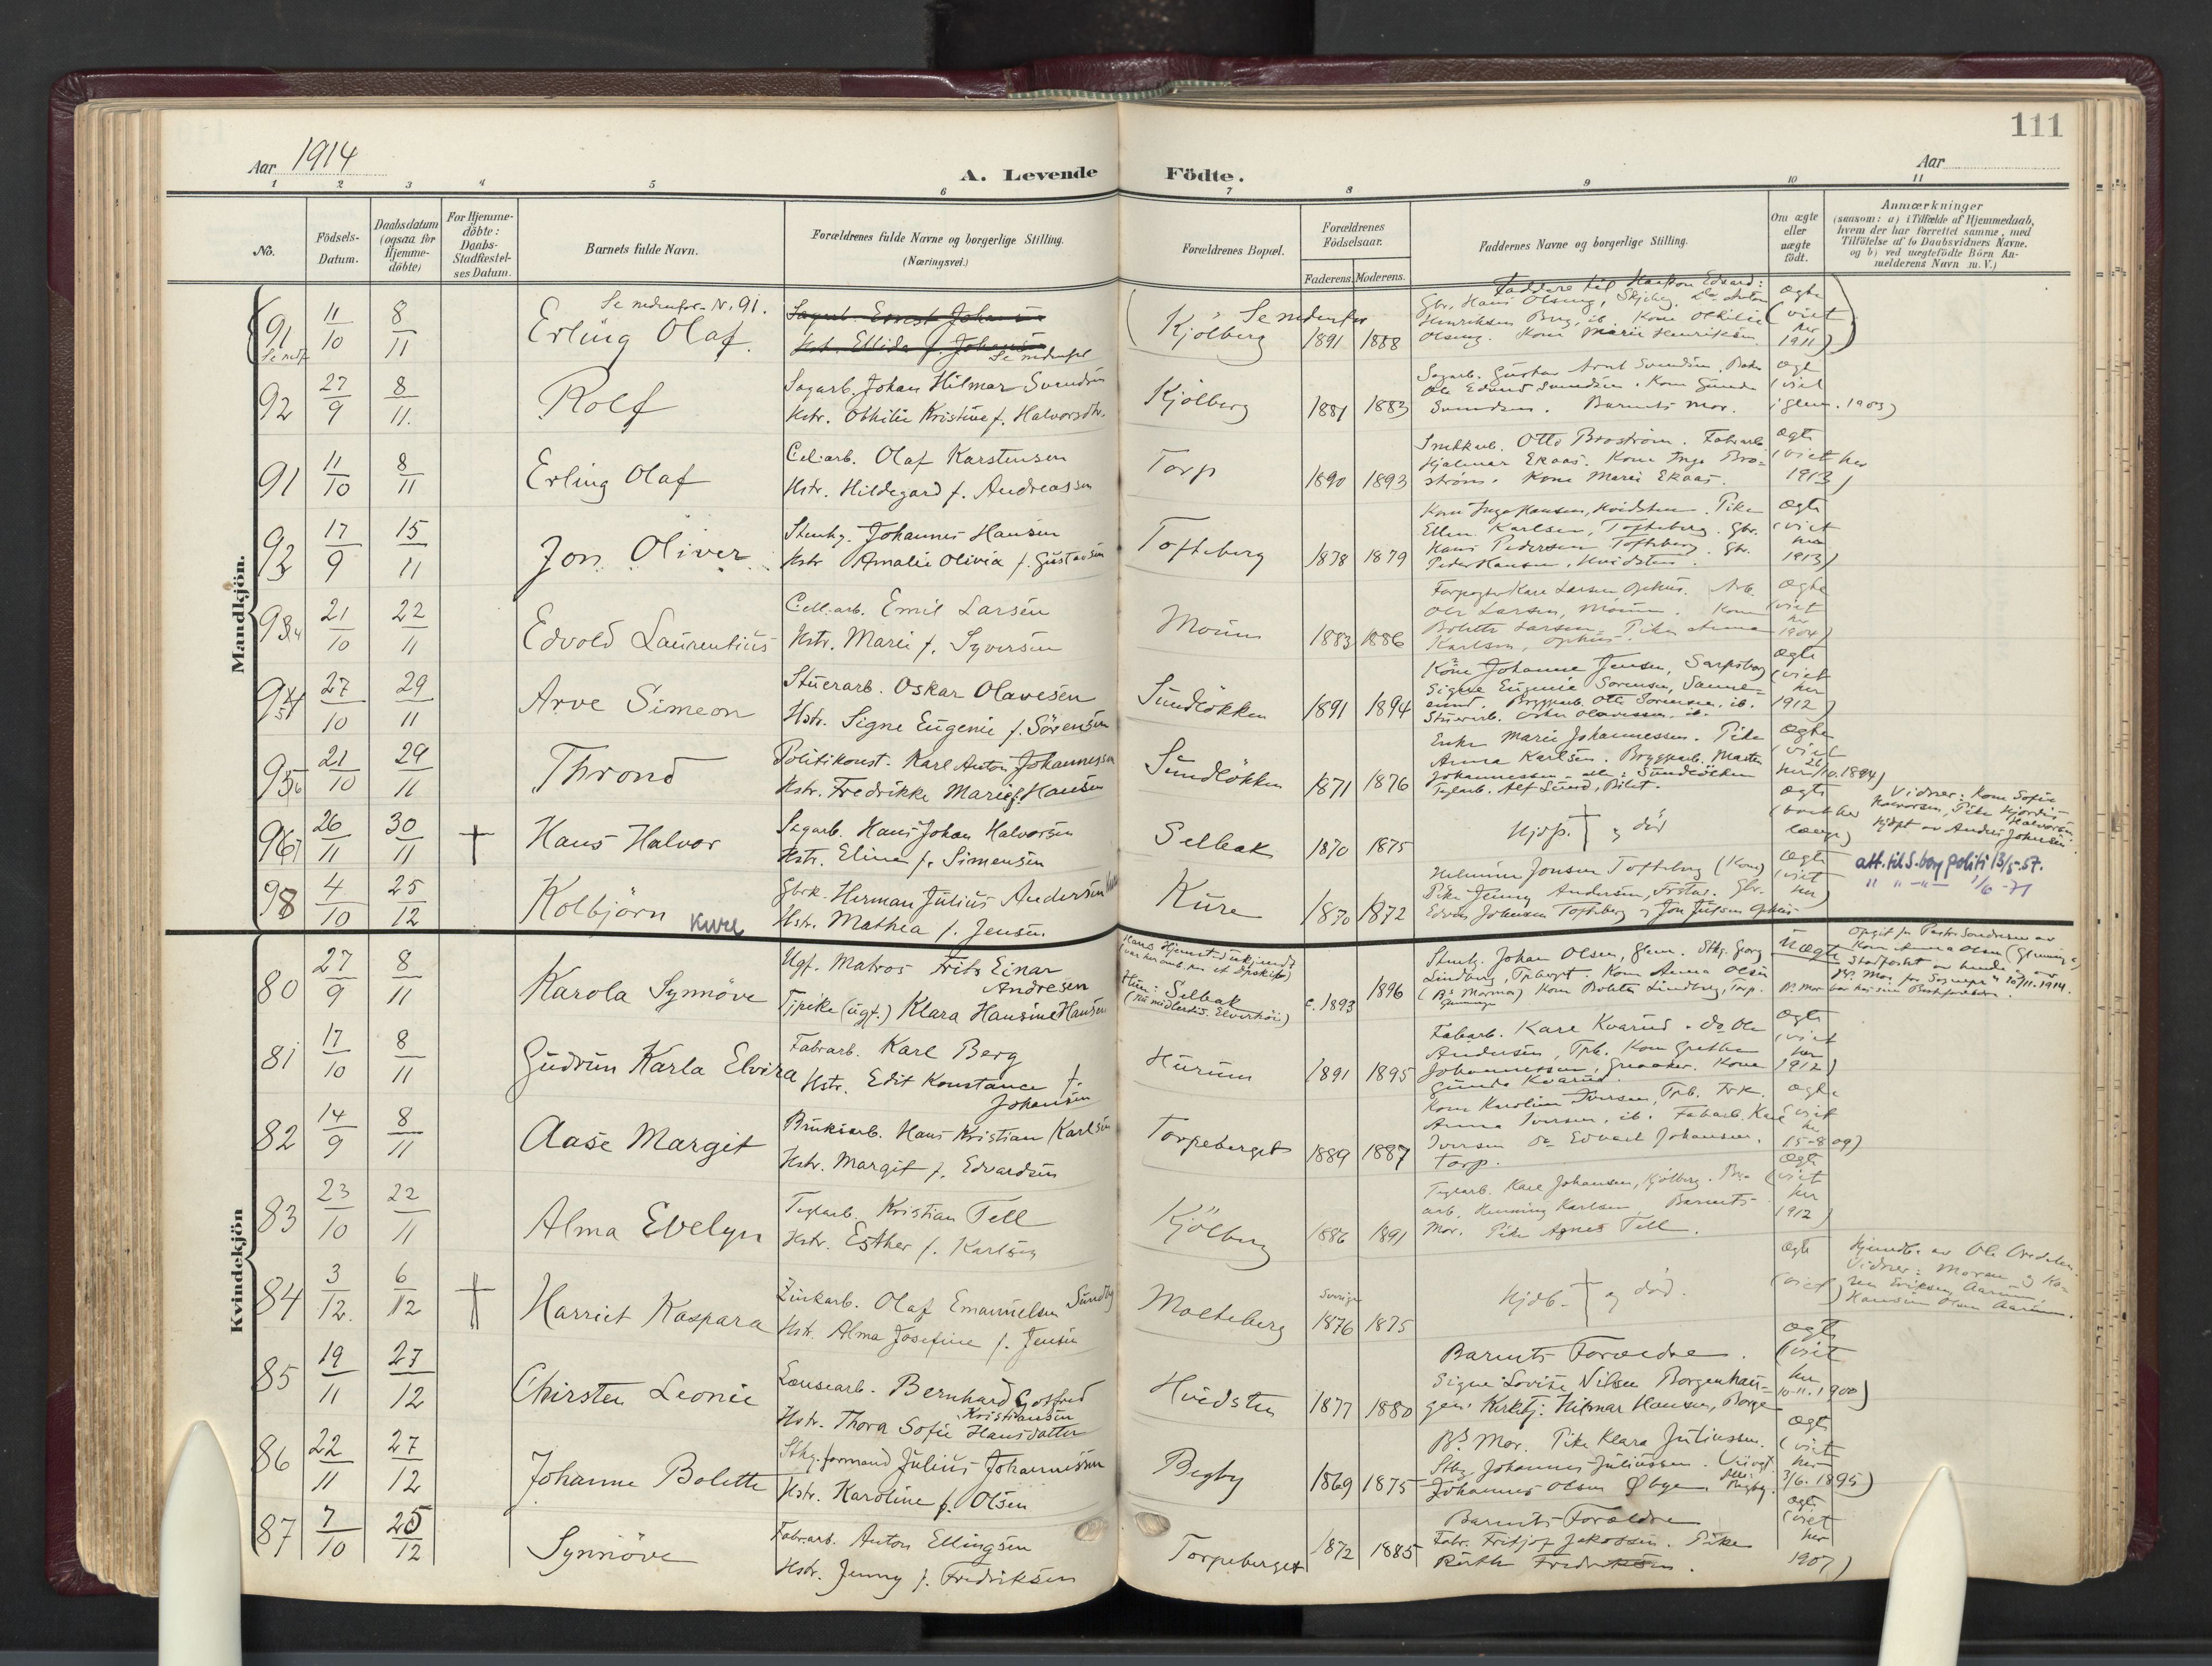 111
Aar 1914
Aar
A. Levende Födte.
1 2 3 4 5 6 7 8 9 10 11
No.
Födsels-Datum.
Daabsdatum (ogsaa for Hjemme-döbte)
For Hjemme-döbte: Daabs-Stadfæstel-ses Datum.
Barnets fulde Navn.
Forældrenes fulde Navne og borgerlige Stilling.
(Næringsvei.)
Forældrenes Bopæl.
Forældrenes Födselsaar.
Faderens. Moderens.
Faddernes Navne og borgerlige Stilling.
Om ægte eller uægte födt.
Anmærkninger
(saasom: a) i Tilfælde af Hjemmedaab,
hvem der har forrettet samme, med
Tilföielse af to Daabsvidners Navne.
og b) ved uægtefödte Börn An-
melderens Navn m. V.)
Mandkjön.
91 11/10 8/11 Se nedenfor N. 91.
Erling Olaf.
Sagarb. Ernst Johansen
Hstr. Ellida f. Johans
Se nedenfor
Kjölberg 1891 1888
Faddere til Haakon Edvard:
Gbr. Hans Olseng, Skjeby, do Anton
Henriksen Berg, ib. Kone Othilie
Olseng. Kone Marie Henriksen
ægte (viet her 1911)
92 27/9 8/11. Rolf
Sagarb. Johan Hilmar Svendsen
Hstr. Othilie Kristine f. Halvorsdtr.
Kjölberg 1881 1883
Sagarb. Gustav Arnt Svendsen.
Ole Edvard Svendsen. Kone Gunda
Svendsen. Barnets Mor.
ægte (viet i Glem. 1903)
91 11/10 8/11 Erling Olaf
Cel.arb. Olaf Karstensen
Hstr. Hildegard f. Andreassen
Torp 1890 1893
Otto Broström. Fabrarb.
Hjalmar Ekaas. Kone Inga Bro-
ström. Kone Marie Ekaas.
ægte (viet her 1913)
93 17/9 15/11 Jon Oliver
Stenhg. Johannes Hansen
Hstr Amalie Olivia f. Gustavsen
Tofteberg 1878 1879
Kone Inga Hansen, Hvidsten. Pike
Ellen Karlsen, Tofteberg. Gbr.
Hans Pedersen Tofteberg. Gbr.
Peder Hansen, Hvidsten.
ægte (viet her 1913)
94 21/10 22/11 Edvold Laurentius
Cell.arb. Emil Larsen
Hstr. Marie f. Syversen
Moum 1883 1886
Forpagter Kare Larsen Ophus. Arb.
Ole Larsen, Moum. Kone
Bolette Larsen. Pike Anna
Karlsen, Ophus.
ægte (viet her 1904)
95 27/10 29/11 Arve Simeon
Stuerarb. Oskar Olavesen
Hstr. Signe Eugenie f. Sörensen
Sundlökken 1891 1894
Kone Johanne Jensen, Sarpsborg
Signe Eugenie Sorensen, Sanne-
sund. Bryggearb. Ole Sorensen, ib.
Stuerarb. Oskar Olavessen, ib.
ægte (viet her 1912)
96 21/10 29/11 Thrond
Politikonst. Karl Anton Johannessen
Hstr. Fredrikke Marie f. Hansen
Sundlökken 1871 1876
Enke Marie Johannessen. Pike
Anna Karlsen. Bryggearb. Martin
Johannessen alle: Sundlökken
Teglarb. Alf Lund, Bilet.
ægte (viet her 26/10.1894)
97 26/11 30/11 † Hans Halvor
Sagarb. Hans Johan Halvorsen
Hstr. Eline f. Simensen
Selbak 1870 1875
Hjdp. † og död
ægte
Vidner: Kone Sofie
Halvorsen, Pike Hjördis
Halvorsen
Hjdpt av Andrea Johnsen
98 4/10 25/12 Kolbjörn Kure
Gbrk. Herman Julius Andersen Kure
Hstr. Mathea f. Jensen.
Kure 1870 1872
Helmine Jonsen Tofteberg (Kone)
Pike Jenny Andersen, Gbr.
Edvin Johansen Tofteberg og Jon Julsen Ophus
ægte (viet her)
att. til S.borg politi 13/5-57.
" " –"– 1/6 -71
Kvindekjön
80 27/9 8/11 Karola Synnöve
Ugf. Matros Frits Einar
Andresen
Tjpike (ugf.) Klara Hansine Hansen
Hans Hjemst. ukjendt
Hun: Selbak
(Nu midlertid. Elverhöi)
c. 1893 1896
Stenhg. Johan Olsen, Glem. Sthg. Georg
Lindberg, Tpberget. Kone Anna Olsen
(Bs Mormor) Kone Bolette Lindberg, Torp.
Uægte
81 17/10 8/11 Gudrun Karla Elvira
Fabrarb. Karl Berg
Hstr. Edit Konstance f.
Johansen
Hurum 1891 1895
Fabarb. Kare Kvarud. do Ole
Andersen, Tpb. Kone Grethe
Johannessen, Greaaker. Kone
Gunda Kvarud.
ægte (viet her 1912)
82 14/9 8/11 Aase Margit
Bruksarb. Hans Kristian Karlsen
Hstr. Margit f. Edvardsen
Torpeberget 1889 1887
Kone Karoline Iversen, Tpb. Frk.
Anna Iversen, ib. Fabarb. Kare
Iversen og Edvart Johansen.
Torp.
ægte (viet her 15-8 09)
83 23/10 22/11 Alma Evelyn
Teglarb. Kristian Tell
Hstr. Esther f. Karlsen
Kjölberg 1886 1891
Teglarb. Kare Johansen, Kjölberg.
arb. Henning Karlsen. Barnets
Mor. Pike Agnes Tell.
ægte (viet her 1912)
84 3/12. 6/12 † Harriet Kaspara
Zinkarb. Olaf Emanuelsen Sundby
Hstr. Alma Josefine f. Jensen
Molteberg Sverige 1876 1875
Hjdb. † og död.
ægte (viet)
Hjemdb. av Ole
Vidner: Moren og Ka-
ren Eriksen, Aarum,
Hansine Olsen Aarum.
85 19/11 27/12 Chirsten Leonie
Lænsearb. Bernhard Gotfred
Kristiansen
Hstr. Thora Sofie Hansdatter
Hvidsten 1877 1880
Barnets Forældre.
Signe Lovise Nilsen Borgenhau-
gen. Kirketj: Hilmar Hansen, Borge
ægte (viet her 10-11.1900)
86 22/11 27/12 Johanne Bolette
Sthg.formand Julius Johannessen
Hstr. Karoline f. Olsen
Begby 1869 1875
Bs Mor. Pike Klara Juliussen.
Sthg. Johannes Juliussen. Ungt.
Johannes Olsen Øbye Alle: Begby.
ægte (viet her 3/6. 1895)
87 7/10 25/12 Synnöve
Fabrarb. Anton Ellingsen
Hstr. Jenny f. Fredriksen
Torpeberget 1872 1885
Barnets Forældre
Fabr. Fritjof Jakobsen. Pike
Ruth Fredriksen.
ægte (viet her 1907)